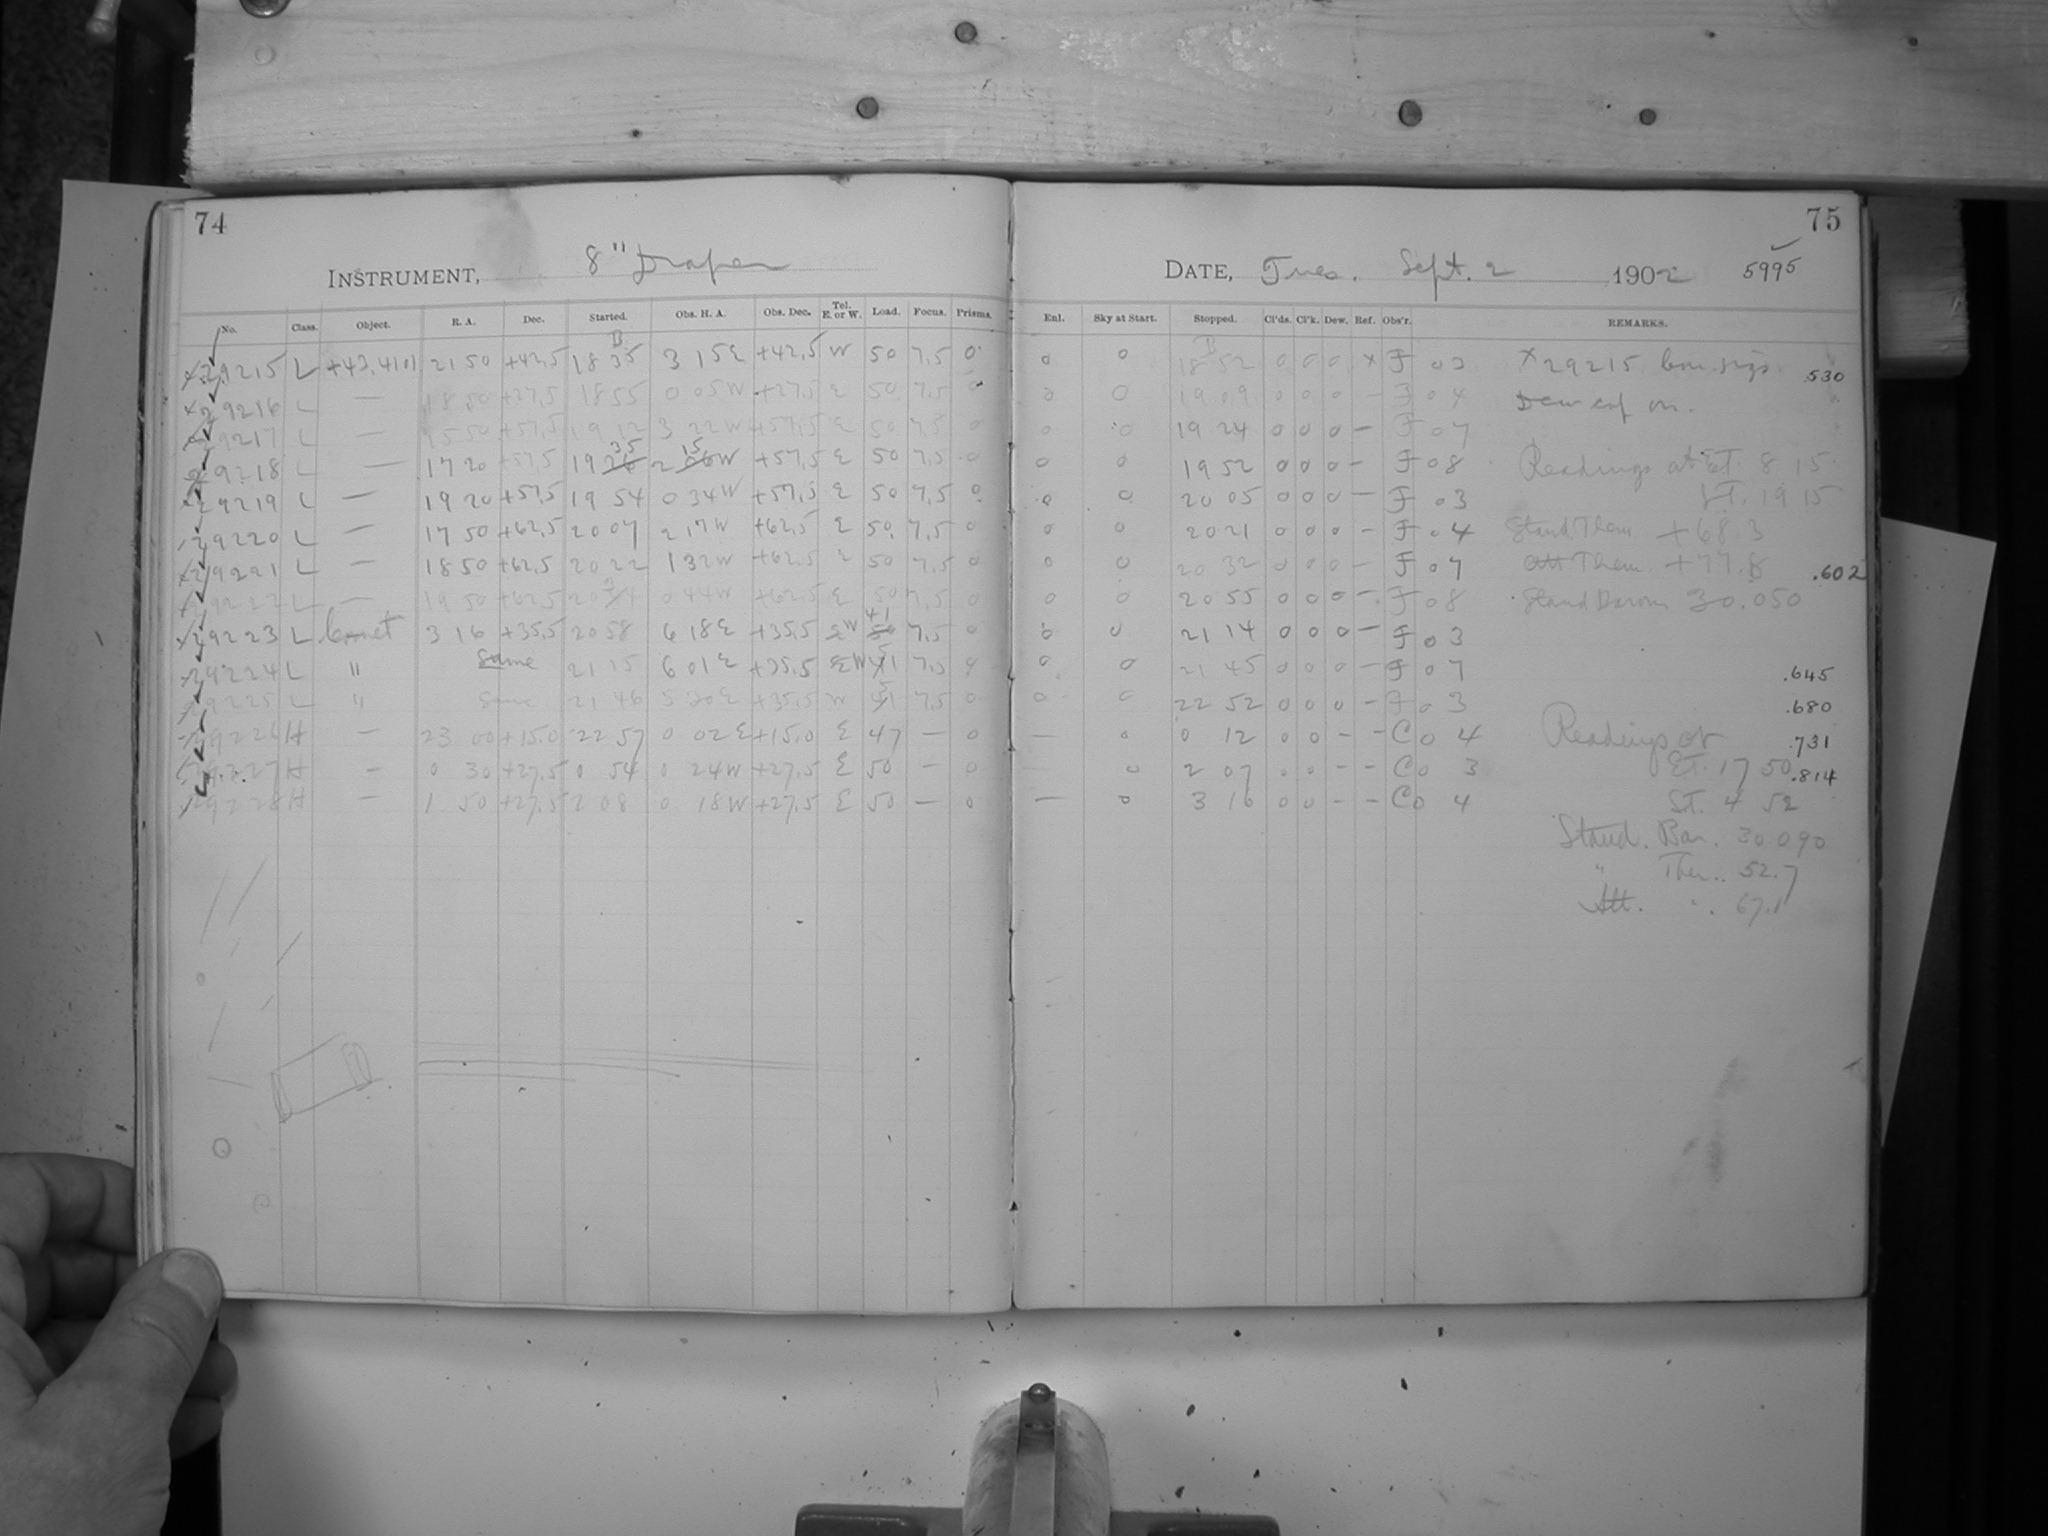 74
75
INSTRUMENT, 8" Draper
DATE, Tues. Sept. 2 1902 5995
No. Class. Object. R. A. Dec. Started. Obs. H. A. Obs. Dec. Tel. E. or W. Load. Focus. Prisms.
Enl. Sky at Start. Stopped. Cl'ds. Cl'k. Dew. Ref. Obs'r. REMARKS.
29215 L +42,4101 21 50 +42,5 18 35 3 15 E +42,5 W 50 7,5 0 0 0 18 52 0 0 0 x F 0 3 x 29215 .530
29216 L — 18 50 +27,5 18 55 0 05 W +27,5 E 50 7,5 0 0 0 19 09 0 0 0 — F 0 4 Dew cap on.
29217 L — 15 50 +57,5 19 12 3 22 W +57,5 E 50 7,5 0 0 0 19 24 0 0 0 — F 0 7
29218 L — 17 20 +57,5 19 35 2 15 W +57,5 E 50 7,5 0 0 0 19 52 0 0 0 — F 0 8 Readings at ET. 8 15
29219 L — 19 20 +57,5 19 54 0 34 W +57,5 E 50 7,5 0 0 0 20 05 0 0 0 — F 0 3 ST. 19 15
29220 L — 17 50 +62,5 20 07 2 17 W +62,5 E 50 7,5 0 0 0 20 21 0 0 0 — F 0 4 Stand Them. +68.3
29221 L — 18 50 +62,5 20 22 1 32 W +62,5 E 50 7,5 0 0 0 20 32 0 0 0 — F 0 7 Att Them. +77.8 .602
29222 L — 19 50 +62,5 20 34 0 44 W +62,5 E 50 7,5 0 0 0 20 55 0 0 0 — F 0 8 Stand Barom 30.050
29223 L Comet 3 16 +35,5 20 58 6 18 E +35,5 W 41 7,5 0 0 0 21 14 0 0 0 — F 0 3
29224 L " Same 21 15 6 01 E +35,5 E W 51 7,5 0 0 0 21 45 0 0 0 — F 0 7 .645
29225 L " Same 21 46 5 30 E +35,5 W 51 7,5 0 0 0 22 52 0 0 0 — F 0 3 .680
29226 H — 23 00 +15.0 22 57 0 02 E +15.0 E 47 — 0 — 0 0 12 0 0 — — C 0 4 Readings at .731
29227 H — 0 30 +27,5 0 54 0 24 W +27,5 E 50 — 0 — 0 2 07 0 0 — — C 0 3 ET. 17 50 .814
29228 H — 1 50 +27,5 2 08 0 18 W +27,5 E 50 — 0 — 0 3 16 0 0 — — C 0 4 ST. 4 52
Stand. Bar. 30.090
" Ther. 52.7
Att. " 67.1